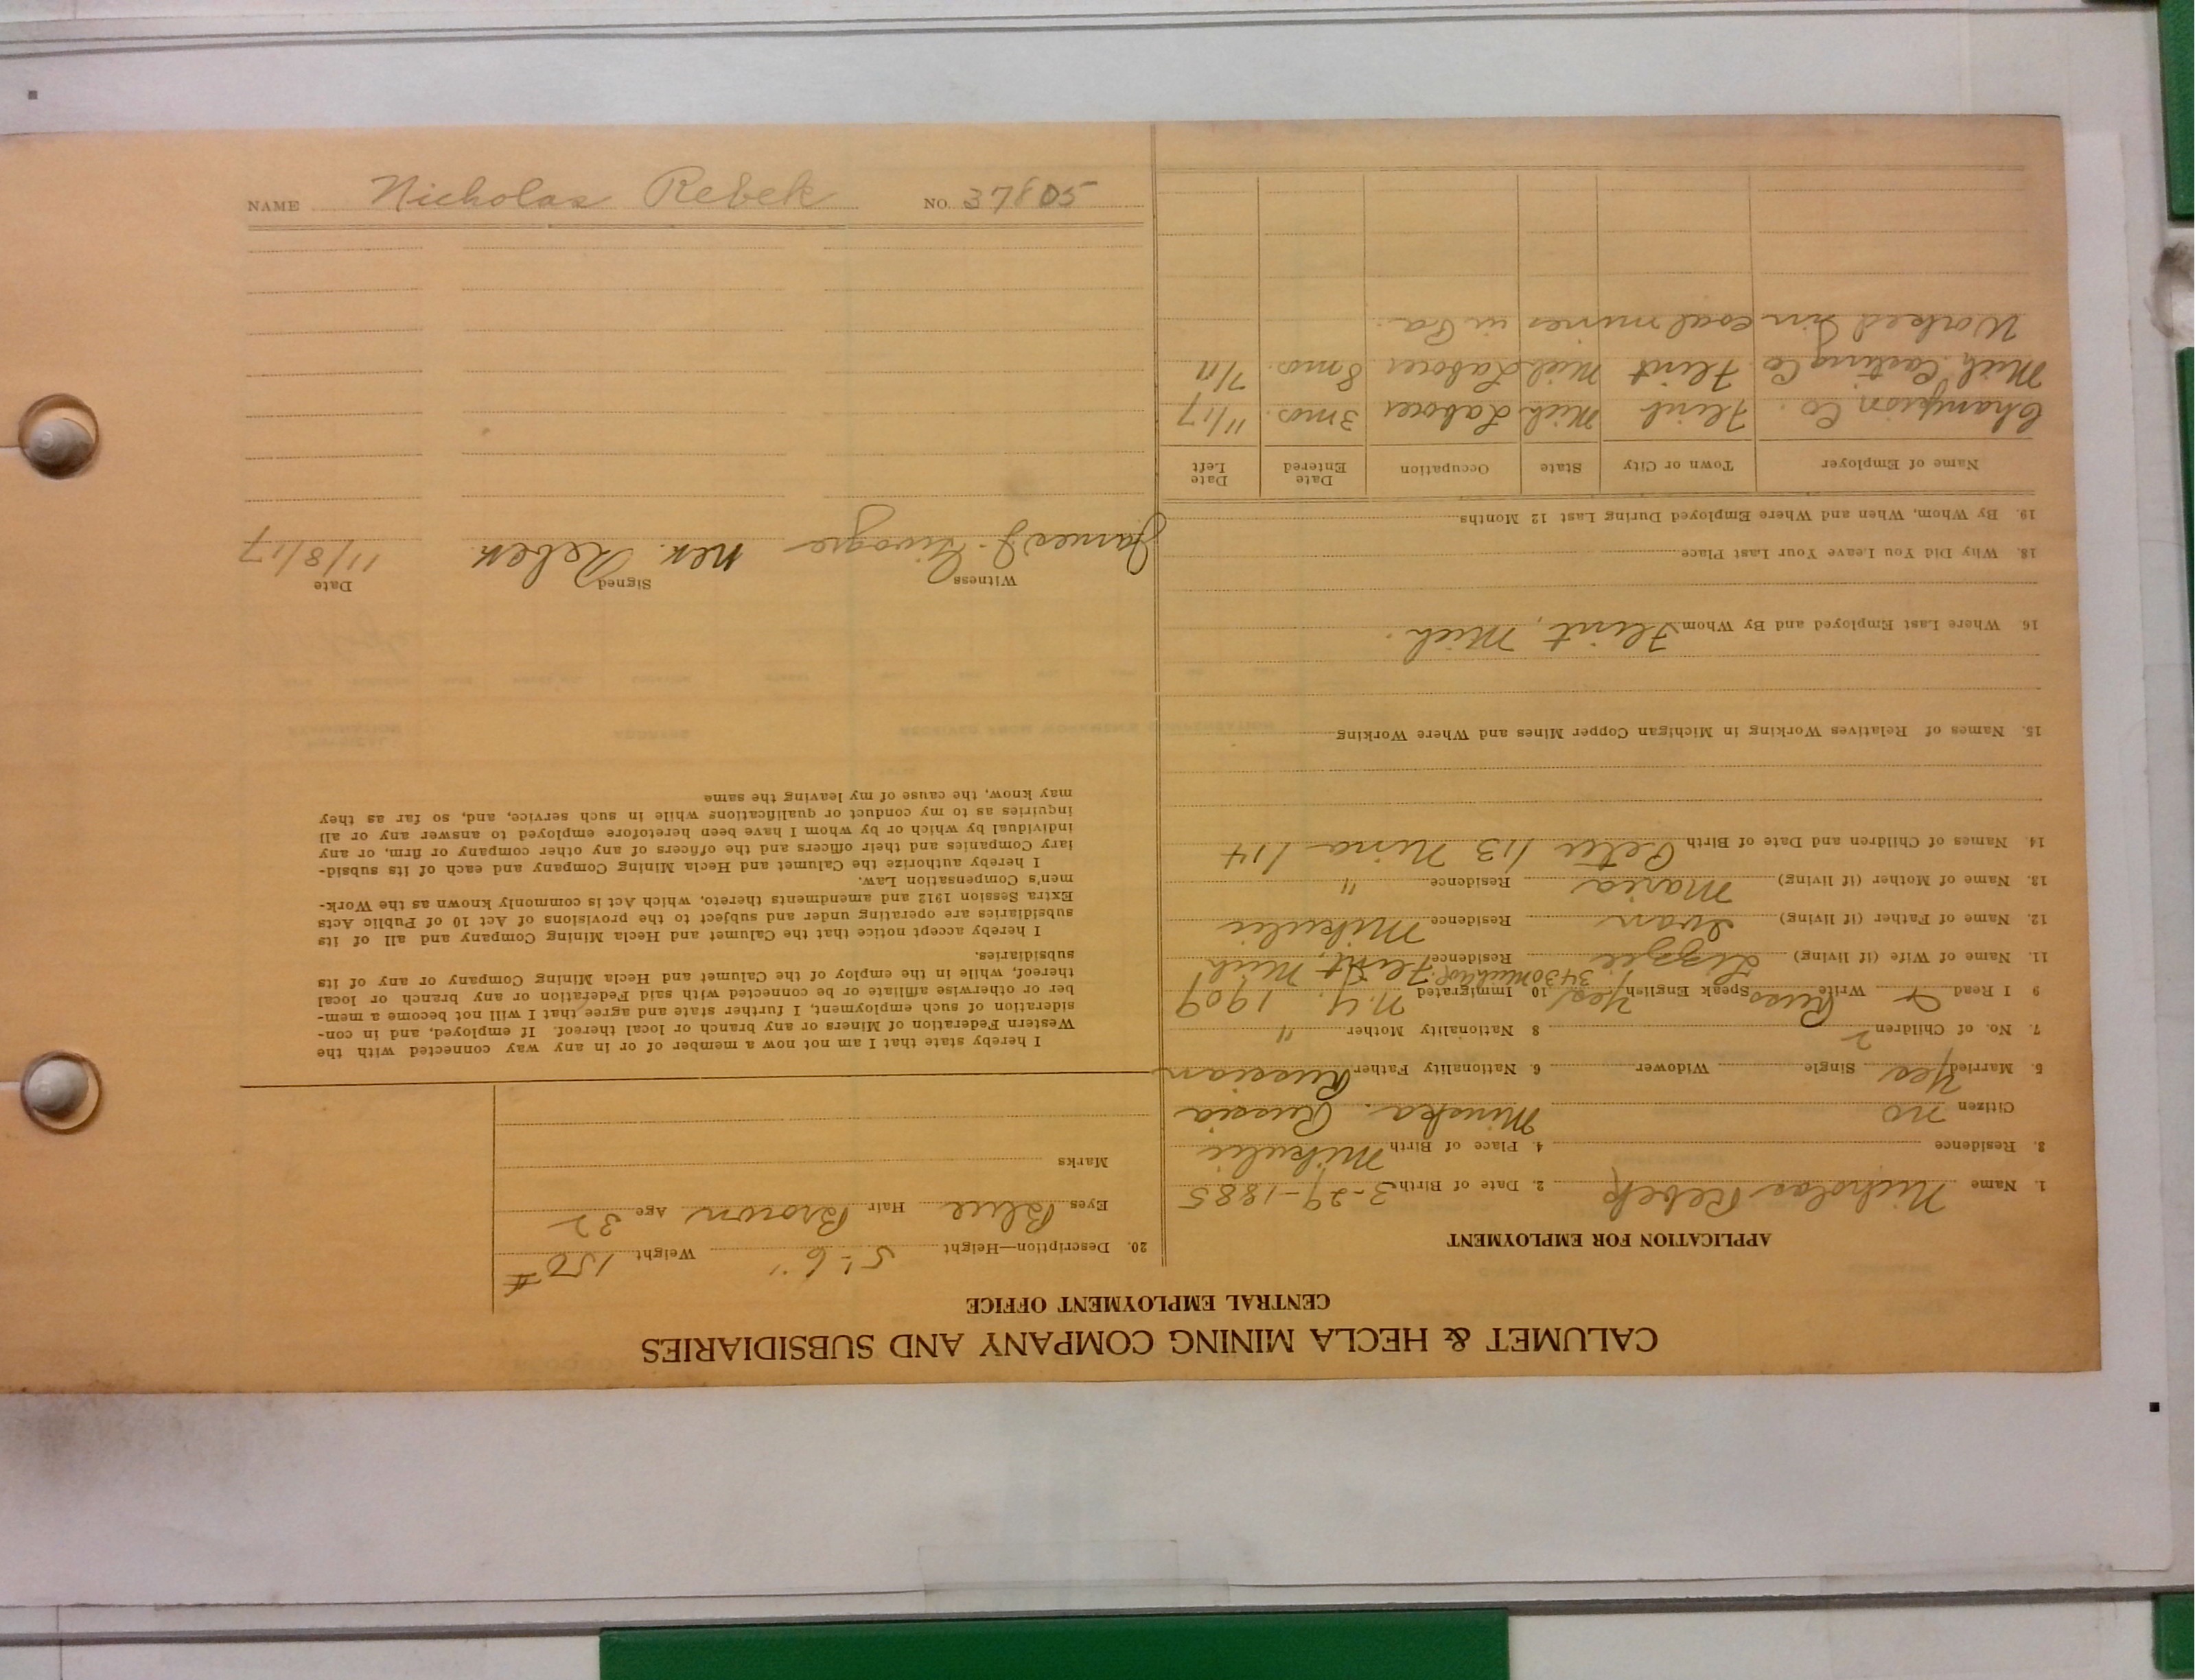 CALUMET & HECLA MINING COMPANY AND SUBSIDIARIES
CENTRAL EMPLOYMENT OFFICE
APPLICATION FOR EMPLOYMENT
1. Name Nicholas Rebek 2. Date of Birth 3-29-1885
3. Residence 4. Place of Birth Mikulic
Citizen no Minska. Russia
5. Married Yes Single Widower 6. Nationality Father Russian
7. No. of Children 2 8 Nationality Mother "
9 I Read & Write Russ Speak English Yes 10 Immigrated N.Y. 1909
3430
11. Name of Wife (if living) Lizzie Residence Flint, Mich
12. Name of Father (if living) Ivan Residence Mikulic
13. Name of Mother (if living) Maria Residence "
14. Names of Children and Date of Birth Peter 1/3 Nina 1/4
15. Names of Relatives Working in Michigan Copper Mines and Where Working
16. Where Last Employed and By Whom Flint, Mich.
18. Why Did You Leave Your Last Place
19. By Whom, When and Where Employed During Last 12 Months
Name of Employer Town or City State Occupation Date Entered Date Left
Champion Co. Flint Mich Laborer 3 mos. 11/17
Mich. Casting Co Flint Mich Laborer 8 mos. 7/17
Worked in coal mines in Pa.
20. Description—Height 5'-6" Weight 150#
Eyes Blue Hair Brown Age 32
Marks
I hereby state that I am not now a member of or in any way connected with the
Western Federation of Miners or any branch or local thereof. If employed, and in con-
sideration of such employment, I further state and agree that I will not become a mem-
ber or otherwise affiliate or be connected with said Federation or any branch or local
thereof, while in the employ of the Calumet and Hecla Mining Company or any of its
subsidiaries.
I hereby accept notice that the Calumet and Hecla Mining Company and all of its
subsidiaries are operating under and subject to the provisions of Act 10 of Public Acts
Extra Session 1912 and amendments thereto, which Act is commonly known as the Work-
men's Compensation Law.
I hereby authorize the Calumet and Hecla Mining Company and each of its subsid-
iary Companies and their officers and the officers of any other company or firm, or any
individual by which or by whom I have been heretofore employed to answer any or all
inquiries as to my conduct or qualifications while in such service, and, so far as they
may know, the cause of my leaving the same
Witness Signed Date
James J. nek. Rebek 11/8/17
NAME Nicholas Rebek NO. 37805